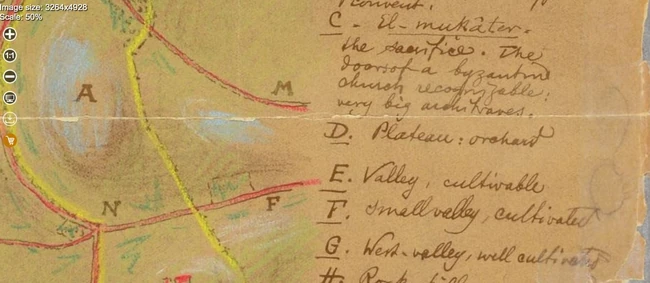 Image size: 3264x4928
Scale: 50%
1:1
Convent.
C - El-mukâter.
the sacrifice. The
doors of a byzantine
church recognizable:
very big architraves.
D. Plateau: orchard
E. Valley, cultivable
F. Small valley, cultivated
G. West-valley, well cultivated
H.
A
M
N
F